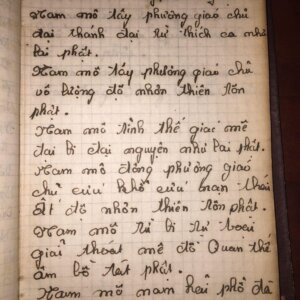 Nam mô tây phương giáo chủ
đại thánh đại từ thích ca như
lai phật.
Nam mô tây phương giáo chủ
vô lượng độ nhơn thiên tôn
phật.
Nam mô tỉnh thế giác mê
đại bi đại nguyện như lai phật.
Nam mô đông phương giáo
chủ cứu khổ cứu nạn thái
ất độ nhơn thiên tôn phật.
Nam mô từ bi từ
giải thoát mê đồ Quan thế
âm bồ tát phật.
Nam mô nam hải phổ đà